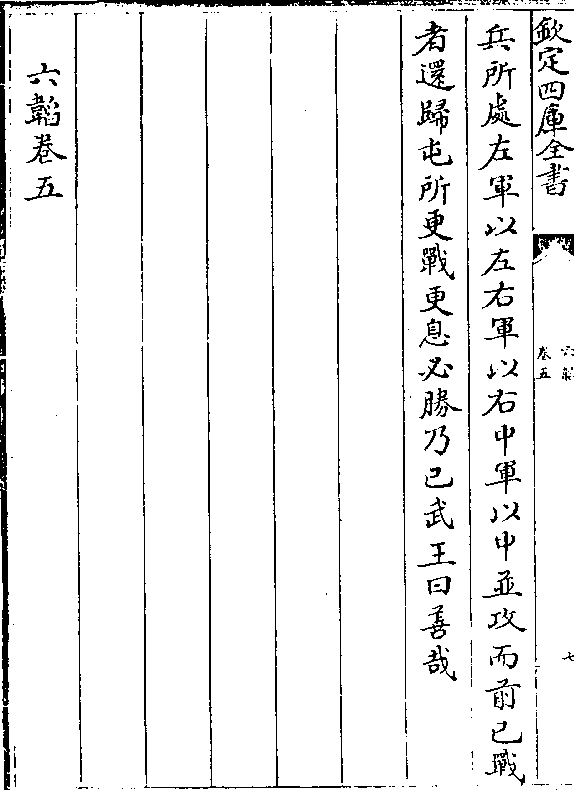 欽定四庫全書
六韜
卷五
七
兵所處左軍以左右軍以右中軍以中並攻而前已戰
者還歸屯所更戰更息必勝乃已武王曰善哉
六韜卷五